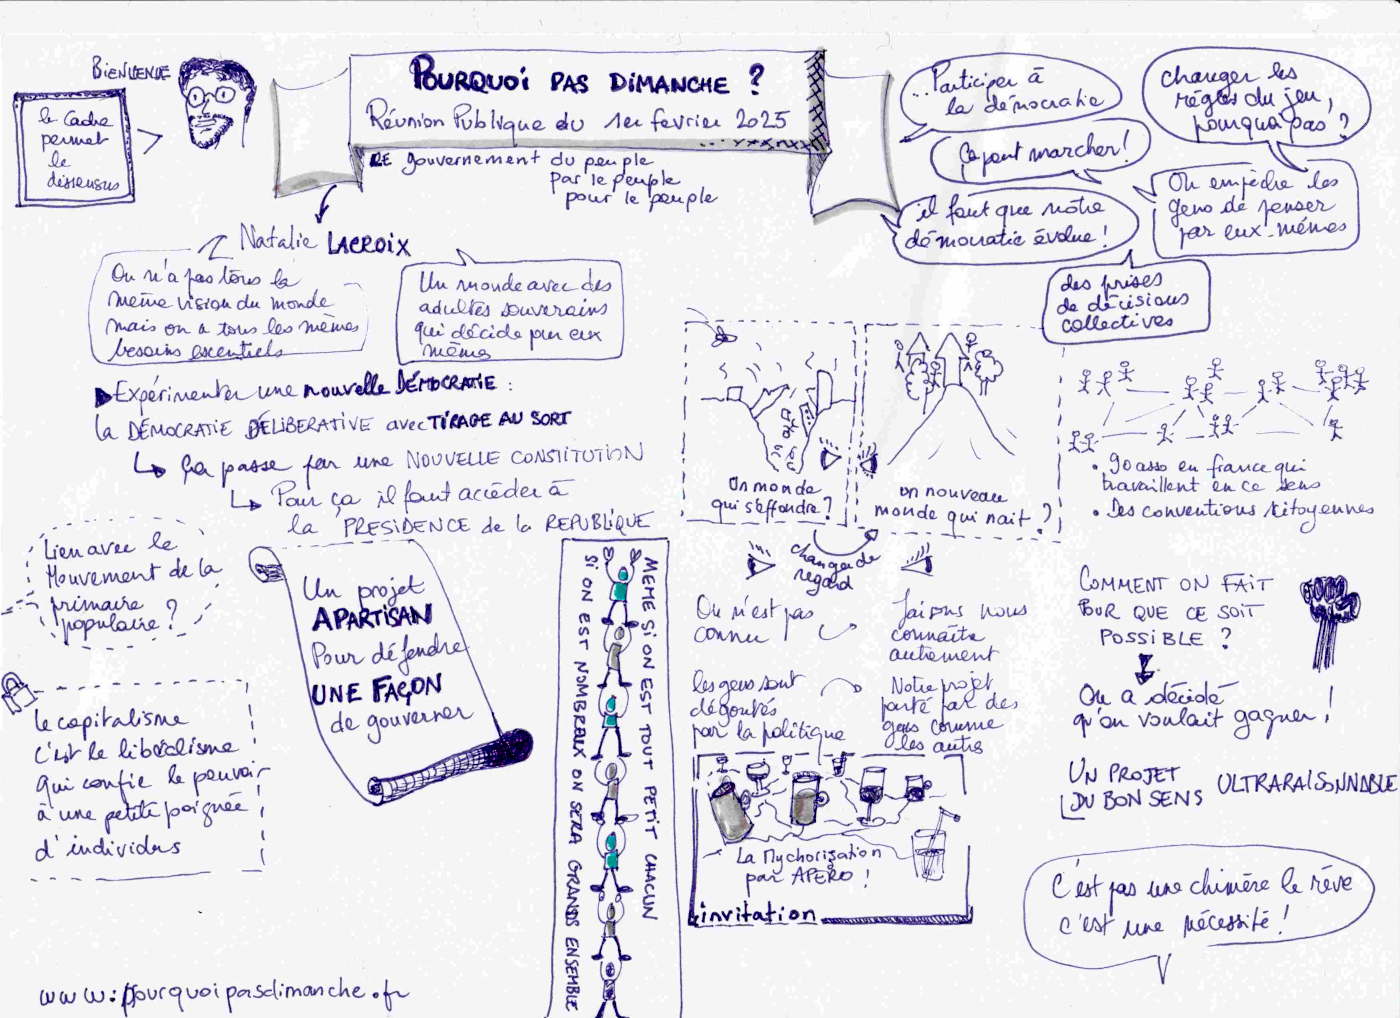 BIENVENUE
le Cadre
permet
le
dissensus
POURQUOI PAS DIMANCHE ?
Réunion Publique du 1er février 2025
LE gouvernement du peuple
par le peuple
pour le peuple
...Participer à
la démocratie
Ça peut marcher !
il faut que notre
démocratie évolue !
changer les
règles du jeu,
pourquoi pas ?
On empêche les
gens de penser
par eux-mêmes
des prises
de décisions
collectives
Natalie LACROIX
On n'a pas tous la
même vision du monde
mais on a tous les mêmes
besoins escentiels
Un monde avec des
adultes souverains
qui décide par eux
même
Expérimenter une nouvelle DÉMOCRATIE :
la DÉMOCRATIE DÉLIBERATIVE avec TIRAGE AU SORT
Ça passe par une NOUVELLE CONSTITUTION
Pour ça il faut accéder à
la PRESIDENCE de la REPUBLIQUE
Lien avec le
Mouvement de la
primaire
populaire ?
le capitalisme
c'est le libéralisme
qui confie le pouvoir
à une petite poignée
d'individus
Un projet
APARTISAN
Pour défendre
UNE FAÇON
de gouverner
MEME SI ON EST TOUT PETIT CHACUN
SI ON EST NOMBREUX ON SERA GRANDS ENSEMBLE
Un monde
qui s'effondre ?
un nouveau
monde qui nait ?
changer de
regard
On n'est pas
connu
Faisons nous
connaitre
autrement
les gens sont
dégoutés
par la politique
Notre projet
porté par des
gens comme
les autres
La Mychorisation
par APERO !
invitation
• 90 asso en france qui
travaillent en ce sens
• Des conventions citoyennes
COMMENT ON FAIT
POUR QUE CE SOIT
POSSIBLE ?
On a décidé
qu'on voulait gagner !
UN PROJET
DU BON SENS ULTRARAISONNABLE
C'est pas une chimère le rêve
c'est une nécessité !
www.pourquoipasdimanche.fr